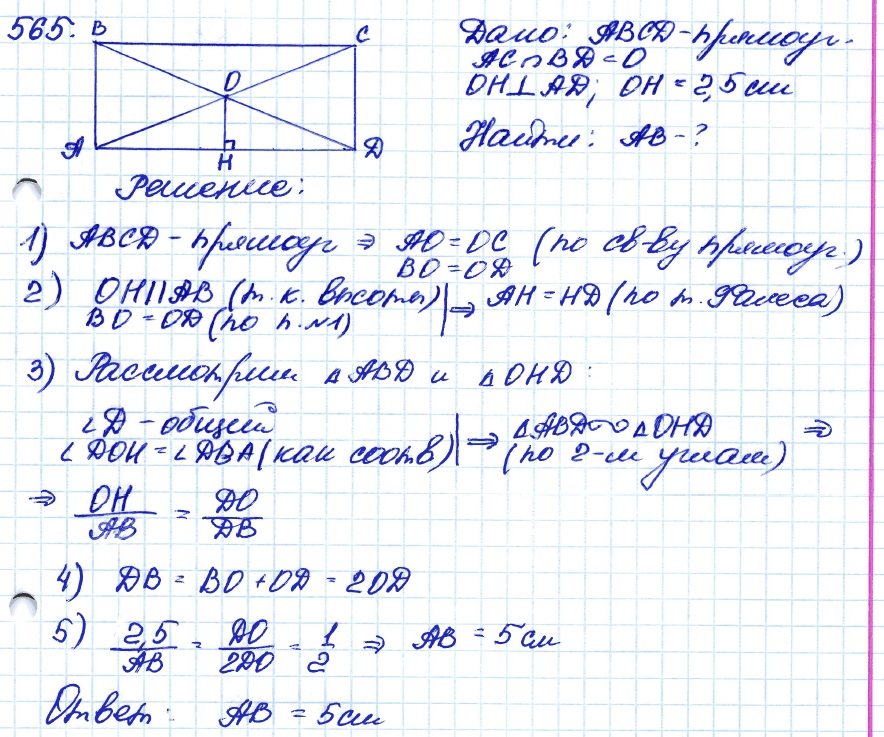 565.
B
C
O
A
H
D
Дано: ABCD - прямоуг.
AC∩BD = O
OH⊥AD; OH = 2,5 см
Найти: AB - ?
Решение:
1) ABCD - прямоуг ⇒ AO = OC (по св-ву прямоуг.)
BO = OD
2) OH || AB (т.к. высоты) | ⇒ AH = HD (по т. Фалеса)
BO = OD (по п.№1)
3) Рассмотрим △ABD и △OHD:
∠D - общий
∠DOH = ∠DBA (как соотв) | ⇒ △ABD ∾ △OHD ⇒
(по 2-м углам)
⇒ OH/AB = DO/DB
4) DB = BO + OD = 2OD
5) 2,5/AB = DO/2DO = 1/2 ⇒ AB = 5 см
Ответ: AB = 5 см